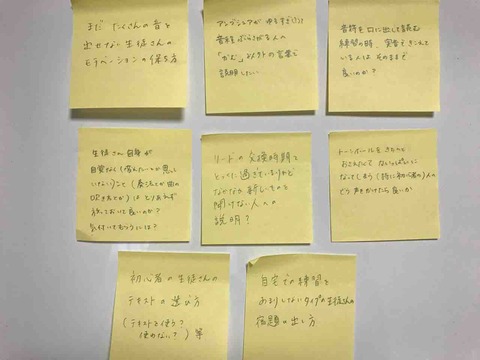 まだ たくさんの音を
出せない生徒さんの
モチベーションの保ち方
アンブシュアが ゆるすぎて
音程ぶらさがる人の
「かむ」以外の言葉で
説明したい
音符を口に出して読む
練習の時、実音でとれて
いる人は そのままで
良いのか？
生徒さん自身が
自覚なく
(奏法とか曲の
吹き方とか)は とりあえず
放っておいて良いのか？
気付いてもらうには？
リードの交換時期を
とっくに過ぎているけど
なかなか新しいものを
開けない人への
説明？
トーンホールを きちんと
おさえ
なってしまう (特に初心者)人の
どう声をかけたら良いか
初心者の生徒さんの
テキストの選び方
(テキストを使う？
使わない？) 等
自宅での練習を
あまりしないタイプの生徒さんの
宿題の出し方